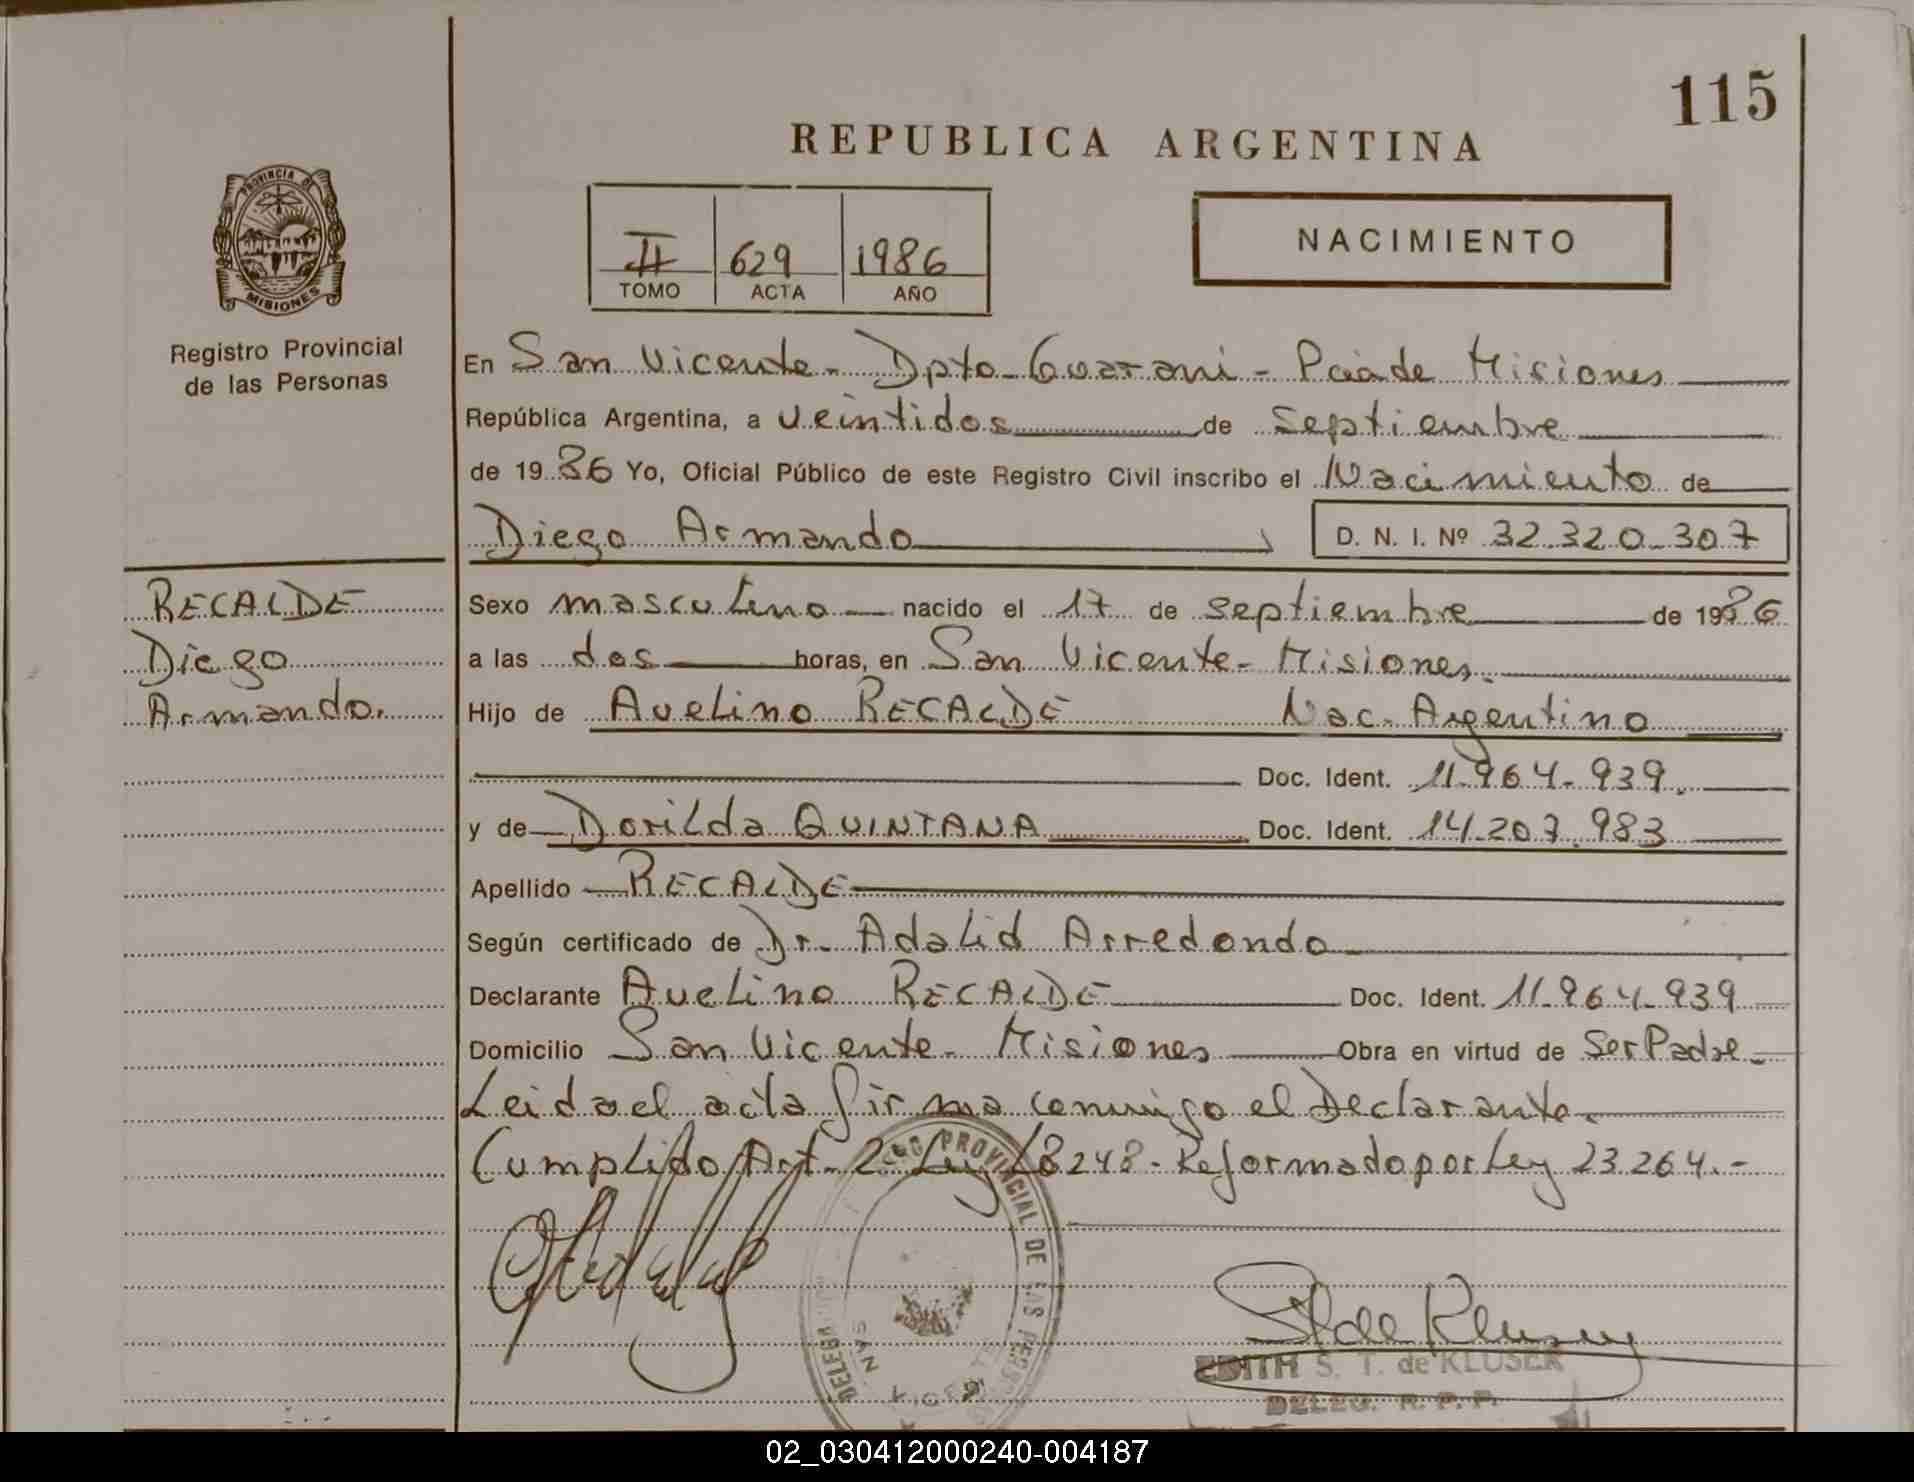 115
REPUBLICA ARGENTINA
PROVINCIA DE
MISIONES
II 629 1986
TOMO ACTA AÑO
NACIMIENTO
Registro Provincial
de las Personas
En San Vicente - Dpto Guarani - Pcia de Misiones
República Argentina, a veintidos de septiembre
de 1986 Yo, Oficial Público de este Registro Civil inscribo el Nacimiento de
Diego Armando D. N. I. Nº 32.320.307
RECALDE
Diego
Armando.
Sexo masculino nacido el 17 de septiembre de 1986
a las dos horas, en San Vicente - Misiones.
Hijo de Avelino RECALDE Nac. Argentino
Doc. Ident. 11.964.939.
y de Dorilda QUINTANA Doc. Ident. 14.207.983
Apellido RECALDE
Según certificado de Dr. Adalid Arredondo
Declarante Avelino RECALDE Doc. Ident. 11.964.939
Domicilio San Vicente - Misiones Obra en virtud de Ser Padre -
Leida el acta firma conmigo el Declarante.
Cumplido Art. 2 - Ley 18248 - Reformado por Ley 23.264.-
PROVINCIAL DE LAS
SAN
EDITH S. T. de KLUSER
DELEG. R. P. P.
02_030412000240-004187